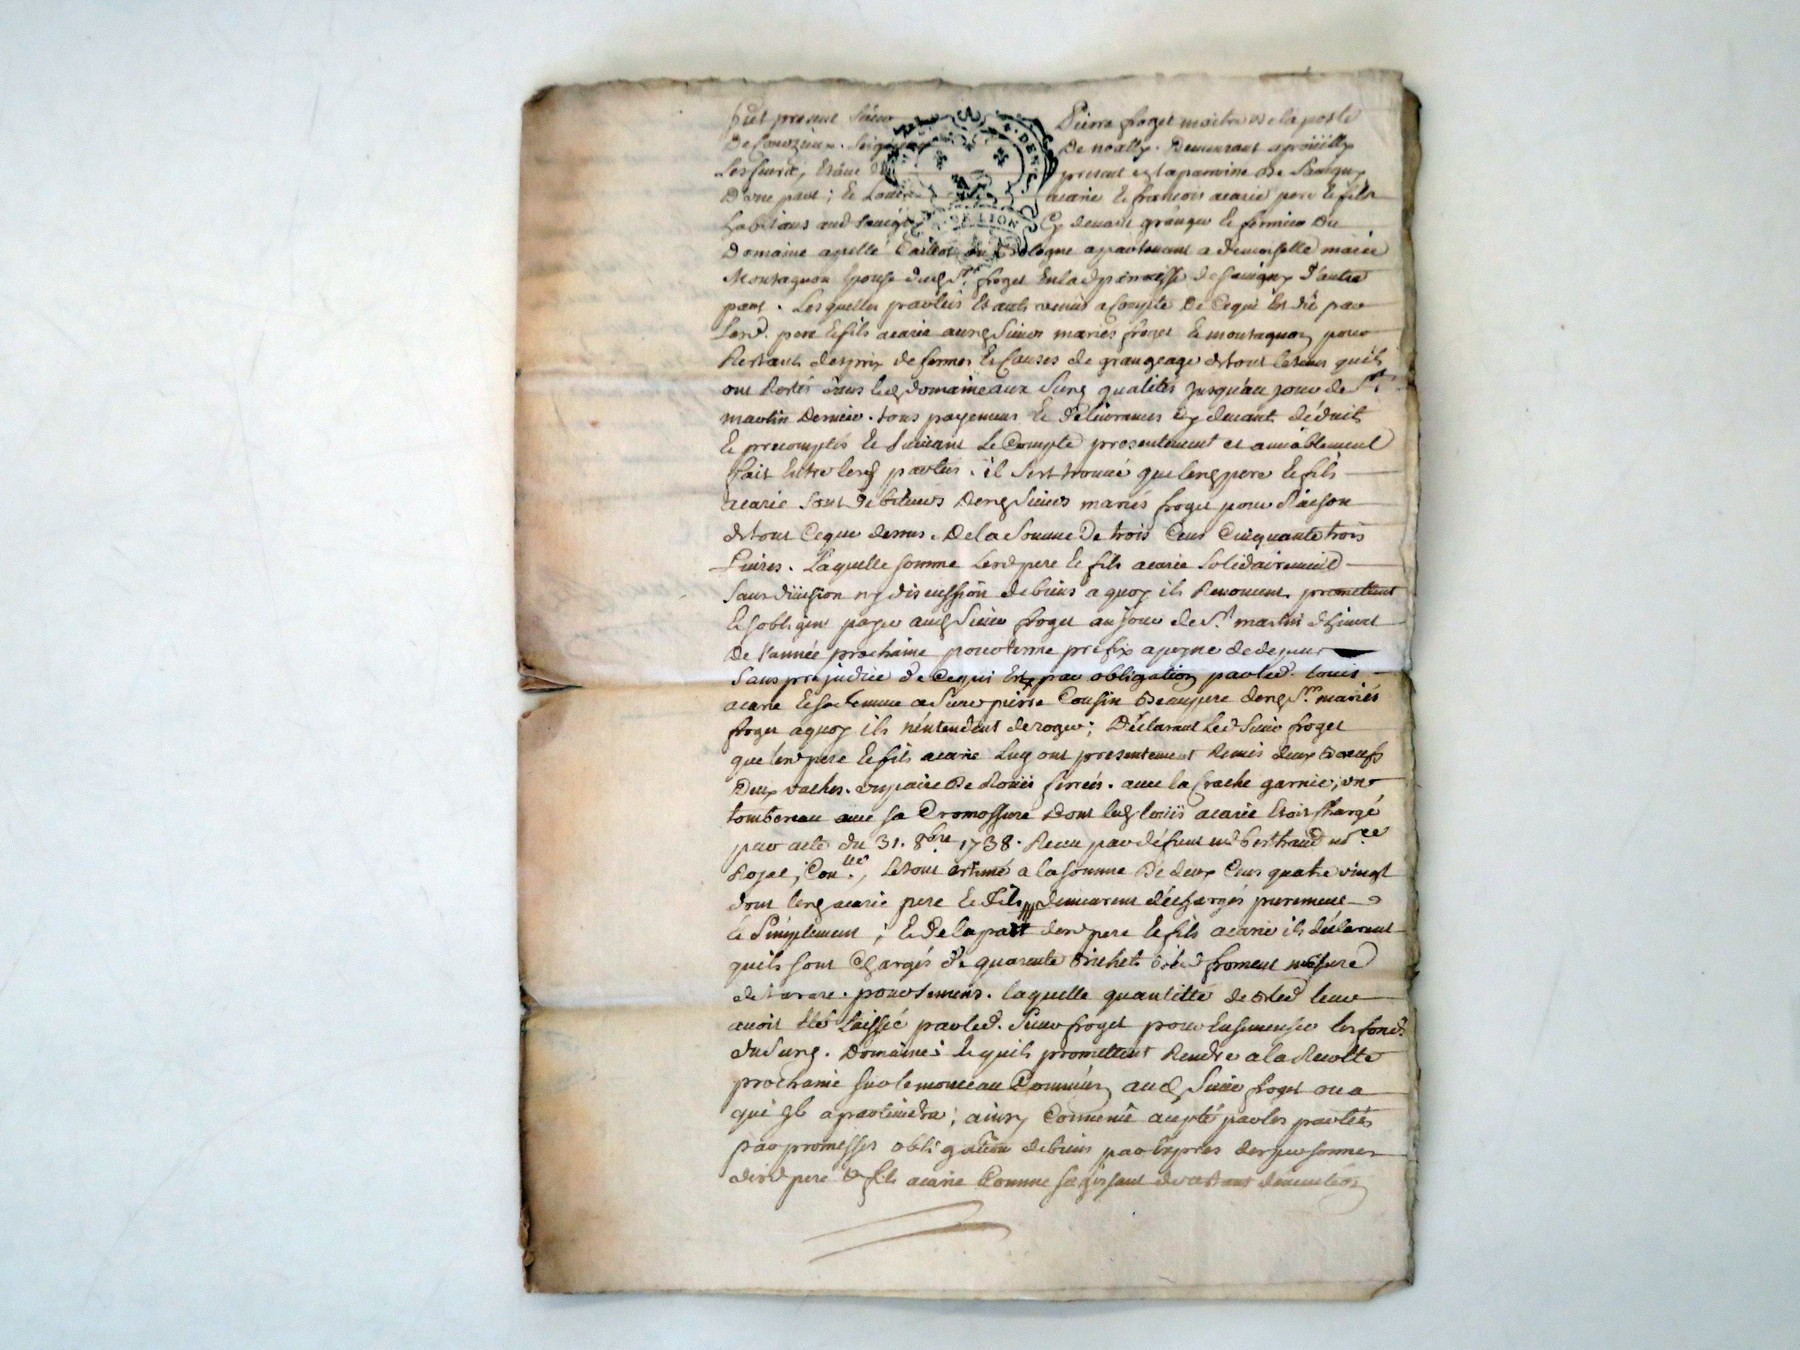 fut present Sieur Pierre froget maitre de la poste
De noally. Demeurant a
present en la parroisse De Savigny
D'une part; Et Loüis acarie Et francois acarie pere Et fils
habitans aud Savigny Cy devant granger Et fermier Du
Domaine apellé apartenant a Demoiselle marie
Montagnon Epouse dud Sr. froget En lad parroisse de Savigny D'autre
part. Lesquelles parties Etants venus a Compte De Cequi Est dû par
lesd. pere Et fils acarie auxd Sieurs mariés froget Et montagnon pour
Restants des prix de fermes Et Causes de grangeage de tout le tems quils
ont Restés dans led domaine aux susd qualités Jusquau jour de St.
martin Dernier. tous payemens Et Delivrances cy devant déduit
Et precomptés Et Suivant Le Compte presentement et amiablement
fait Entre lesd parties. il S'est trouvé que lesd pere Et fils
acarie Sont Debiteurs Desd Sieurs mariés froget pour Raison
de tout Ceque dessus. De la Somme De trois Cens Cinquante trois
Livres. Laquelle somme Lesd pere Et fils acarie Solidairement
Sans division ny discussion de biens a quoy ils Renoncent. promettent
Et sobligent payer aud Sieur froget au jour de St. martin dhivert
De l'année prochaine pour terme prefix a peyne de depens
Sans prejudice de Cequi Est par obligation par led. Louis
acarie Et sa femme a Sieur pierre Cousin Beaupere desd Srs mariés
froget a quoy ils n'entendent deroger; Declarant led Sieur froget
que lesd pere Et fils acarie Luy ont presentement Remis deux Boeufs
Deux vaches. une paire De Roües ferrées. avec la garnie, un
tombereau avec sa Dont led Loüis acarie Etoit Chargé
par acte du 31. 8bre 1738. Recu par défunt me Bertrand nore
Royal, Con.lé, Le tout estimé a la somme De deux Cens quatre vingt
dont lesd acarie pere Et fils demeurent déchargés purement
Et Simplement; Et De la part desd pere Et fils acarie ils déclarent
quils sont Chargés de quarante Bichets Bled froment mesure
de tarare. pour semens. laquelle quantitté de Bled leur
avoit Eté Laissée par led. Sieur froget pour Ensemenser les fonds
du Susd. Domaine: Et quils promettent Rendre a la Recolte
prochaine sur le monceau Commun aud Sieur froget ou a
qui Il apartiendra; ainsy Convenu acepté par les parties
par promesses obligation de biens par Exprès des personnes
desd pere Et fils acarie Comme sagissant de